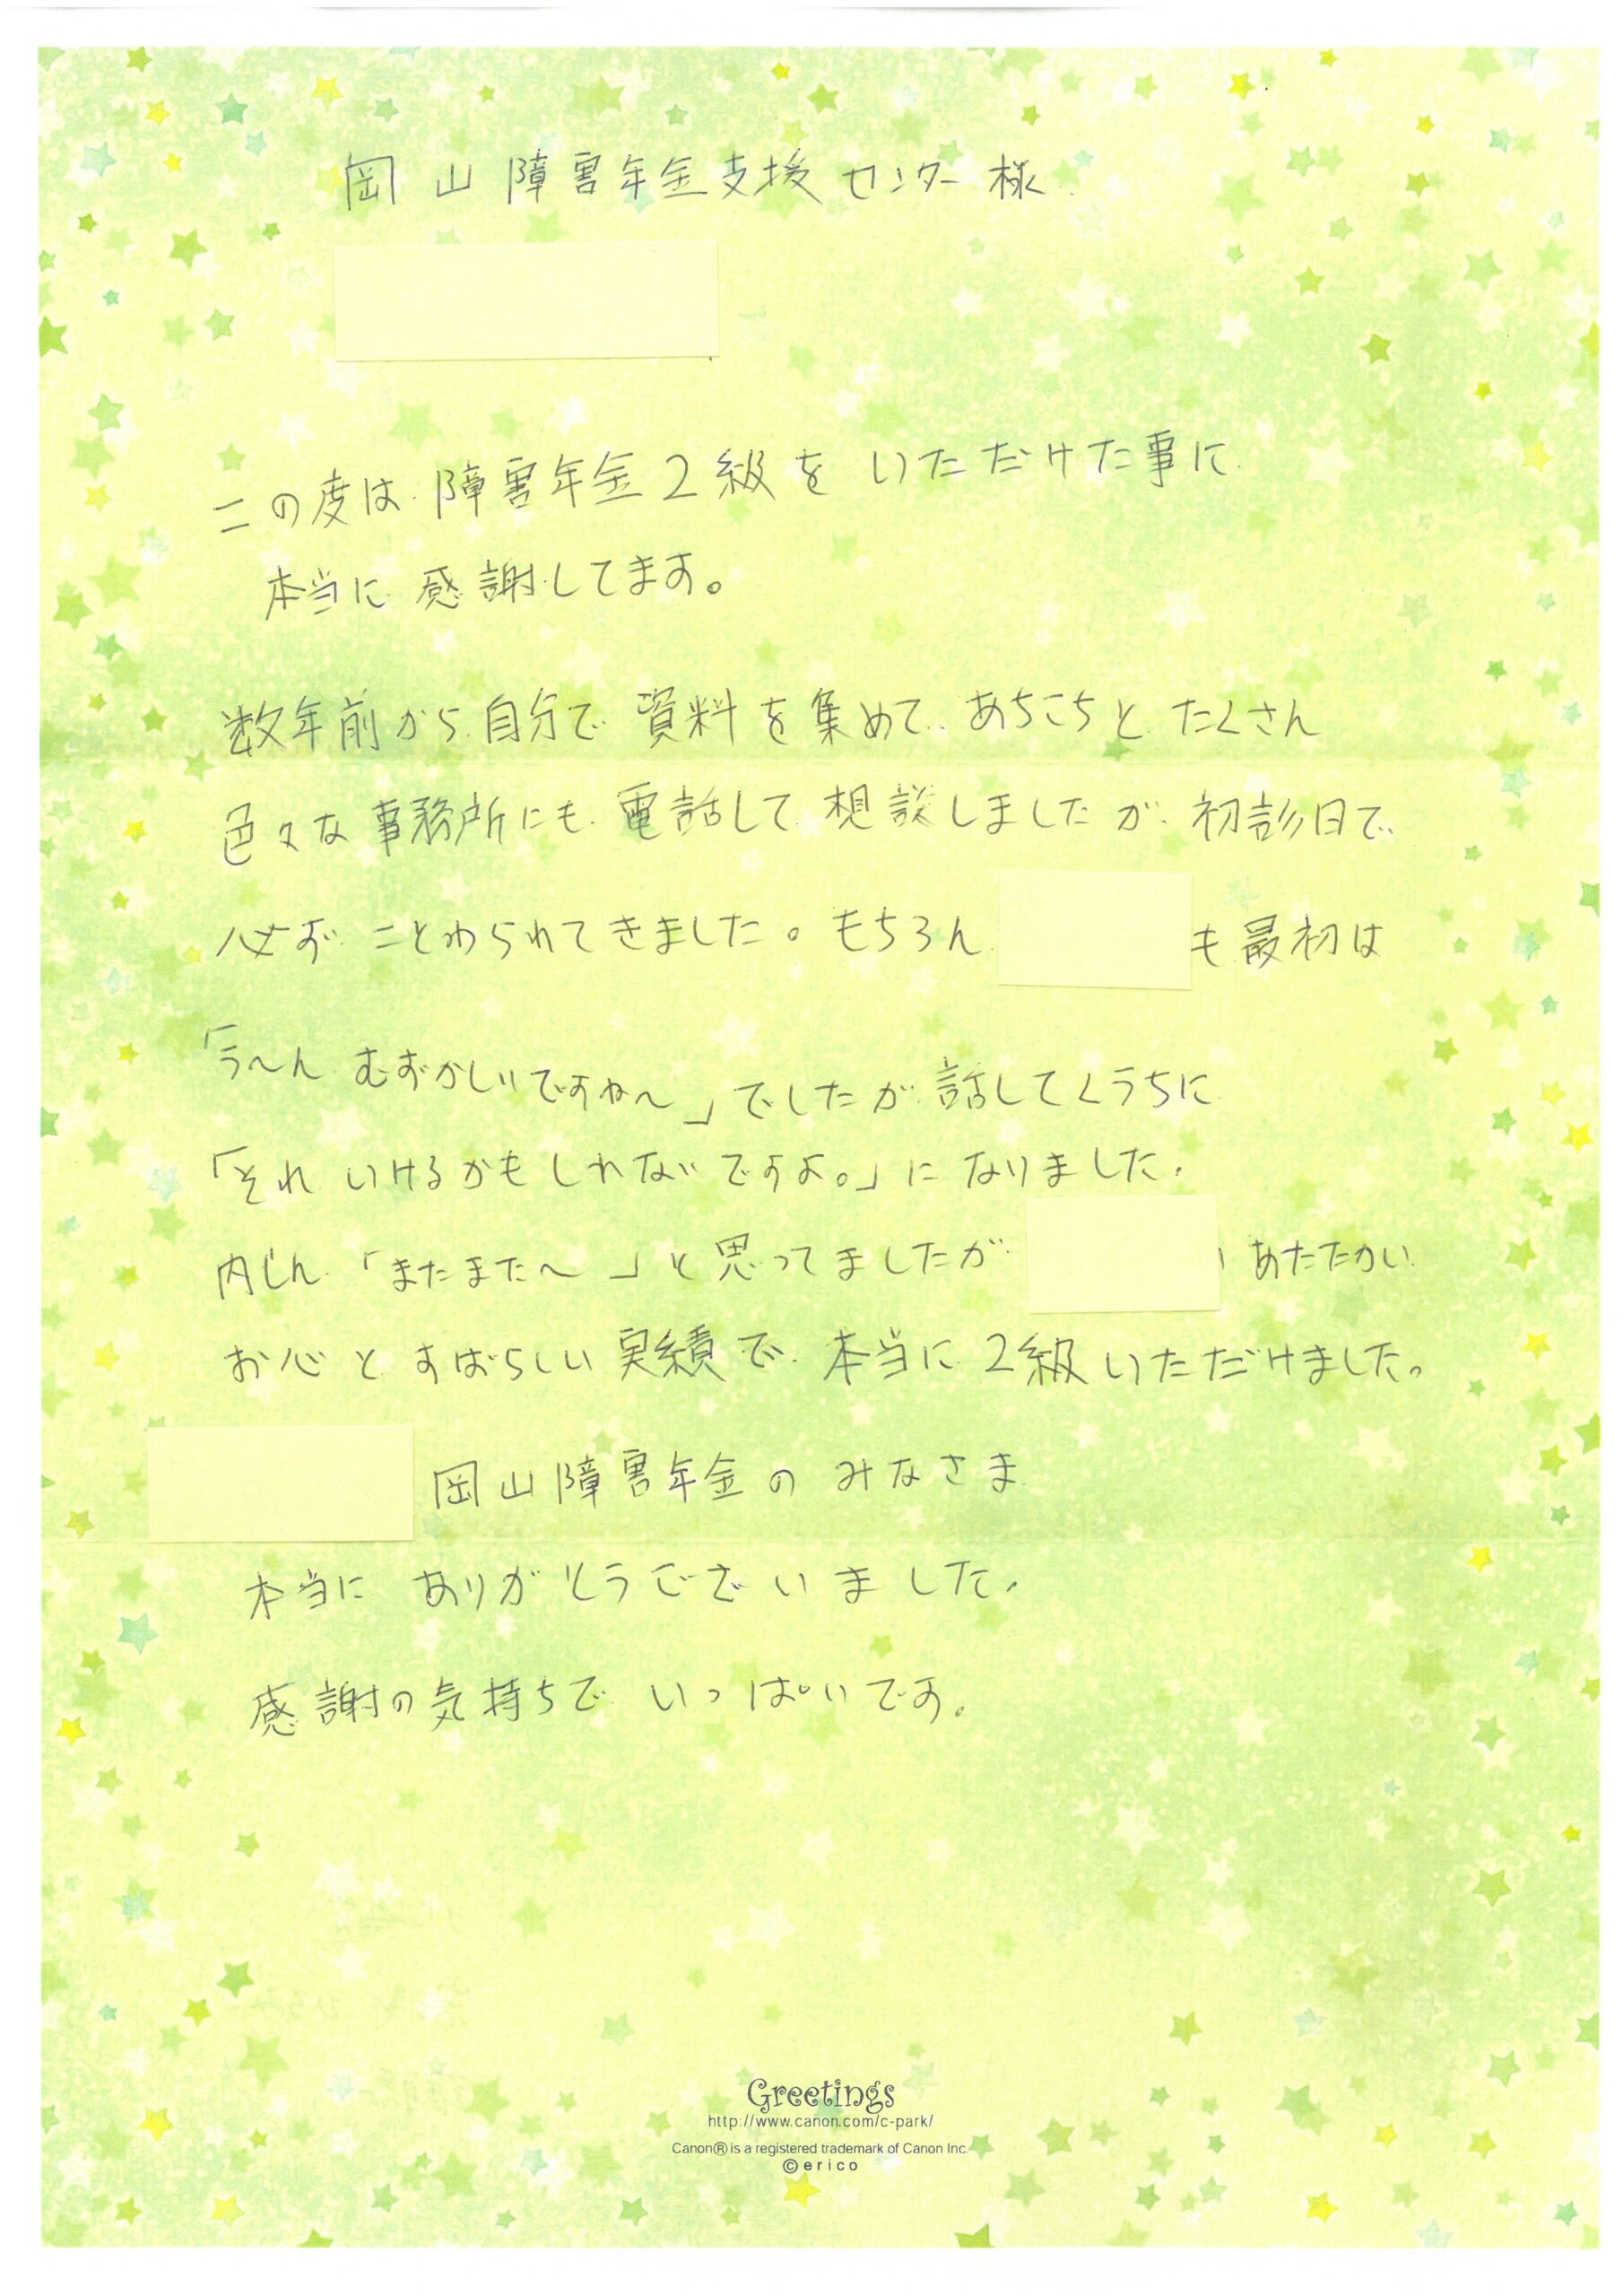 岡山障害年金支援センター様
この度は障害年金2級をいただけた事に
本当に感謝してます。
数年前から自分で資料を集めて、あちこちとたくさん
色々な事務所にも電話して相談しましたが初診日で
必ずことわられてきました。もちろん も最初は
「う〜んむずかしいですね〜」でしたが話してくうちに
「それいけるかもしれないですよ。」になりました。
内じん「またまた〜」と思ってましたが あたたかい
お心とすばらしい実績で本当に2級いただけました。
岡山障害年金のみなさま
本当にありがとうございました。
感謝の気持ちでいっぱいです。
Greetings
http://www.canon.com/c-park/
Canon® is a registered trademark of Canon Inc.
©erico